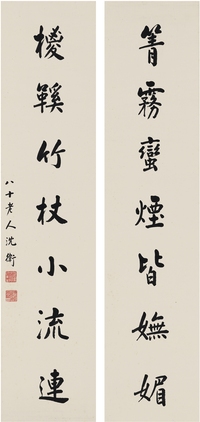 箐霧蠻煙皆嫵媚
椶鞵竹杖小流連
八十老人沈衛